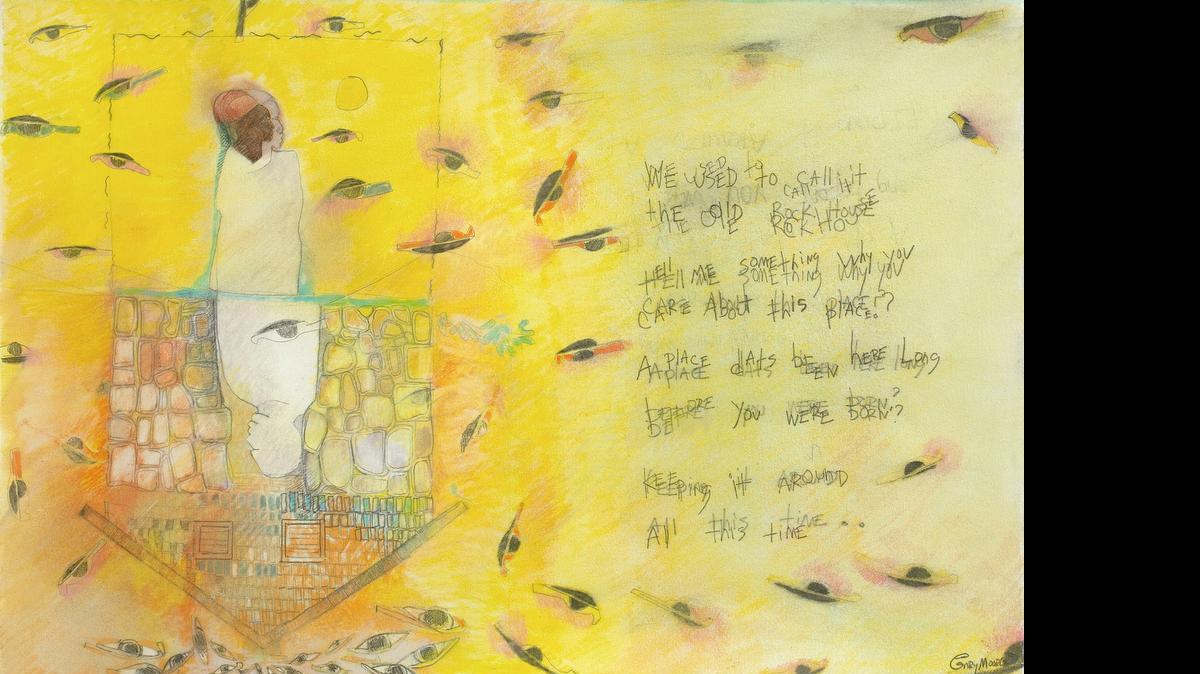 WE USED to CAll it
thE OlD ROCK HOUSE
tEll ME SOMEthiNg Why yoU
CARE About this plACE!?
A PlACE thAts bEEN hERE lONg
bEFORE yOU WERE bORN!?
KEEping it AROUND
All this timE . . .
GARY MOORE